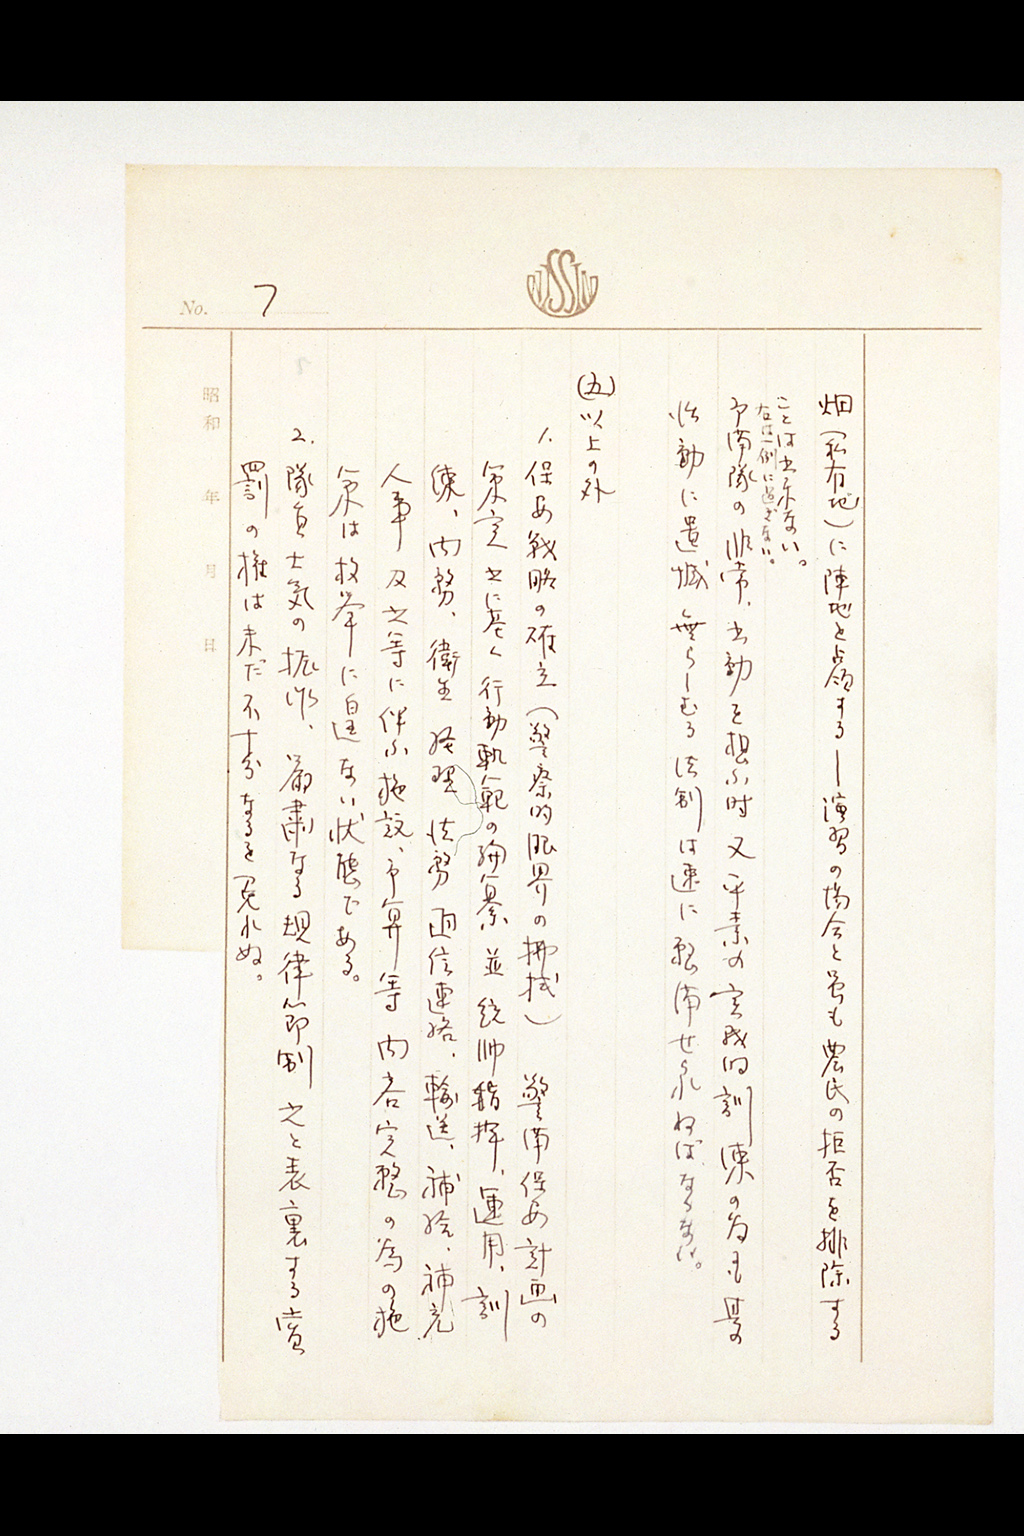 No. 7
NISSIN
昭和 年 月 日
畑(私有地)に陣地を占領する―演習の場合と雖も農民の拒否を排除する
ことは出来ない。
右は一例に過ぎない。
予備隊の非常、出動を想ふ時又平素の実戦的訓練の為にも其の
活動に遺憾無らしむる法制は速に整備せられねばならない。
(五)以上の外
1. 保安戦略の確立(警察的眼界の拂拭) 警備保安計画の
策定之に基く行動軌範の編纂並統帥指揮、運用、訓
練、内務、衛生 経理 法務 通信連絡、輸送、補給、補充
人事及之等に伴ふ施設、予算等内容完整の為の施
策は枚挙に遑ない状態である。
2. 隊員士気の振作、厳粛なる規律節制 之と表裏する賞
罰の権は未だ不十分なるを免れぬ。